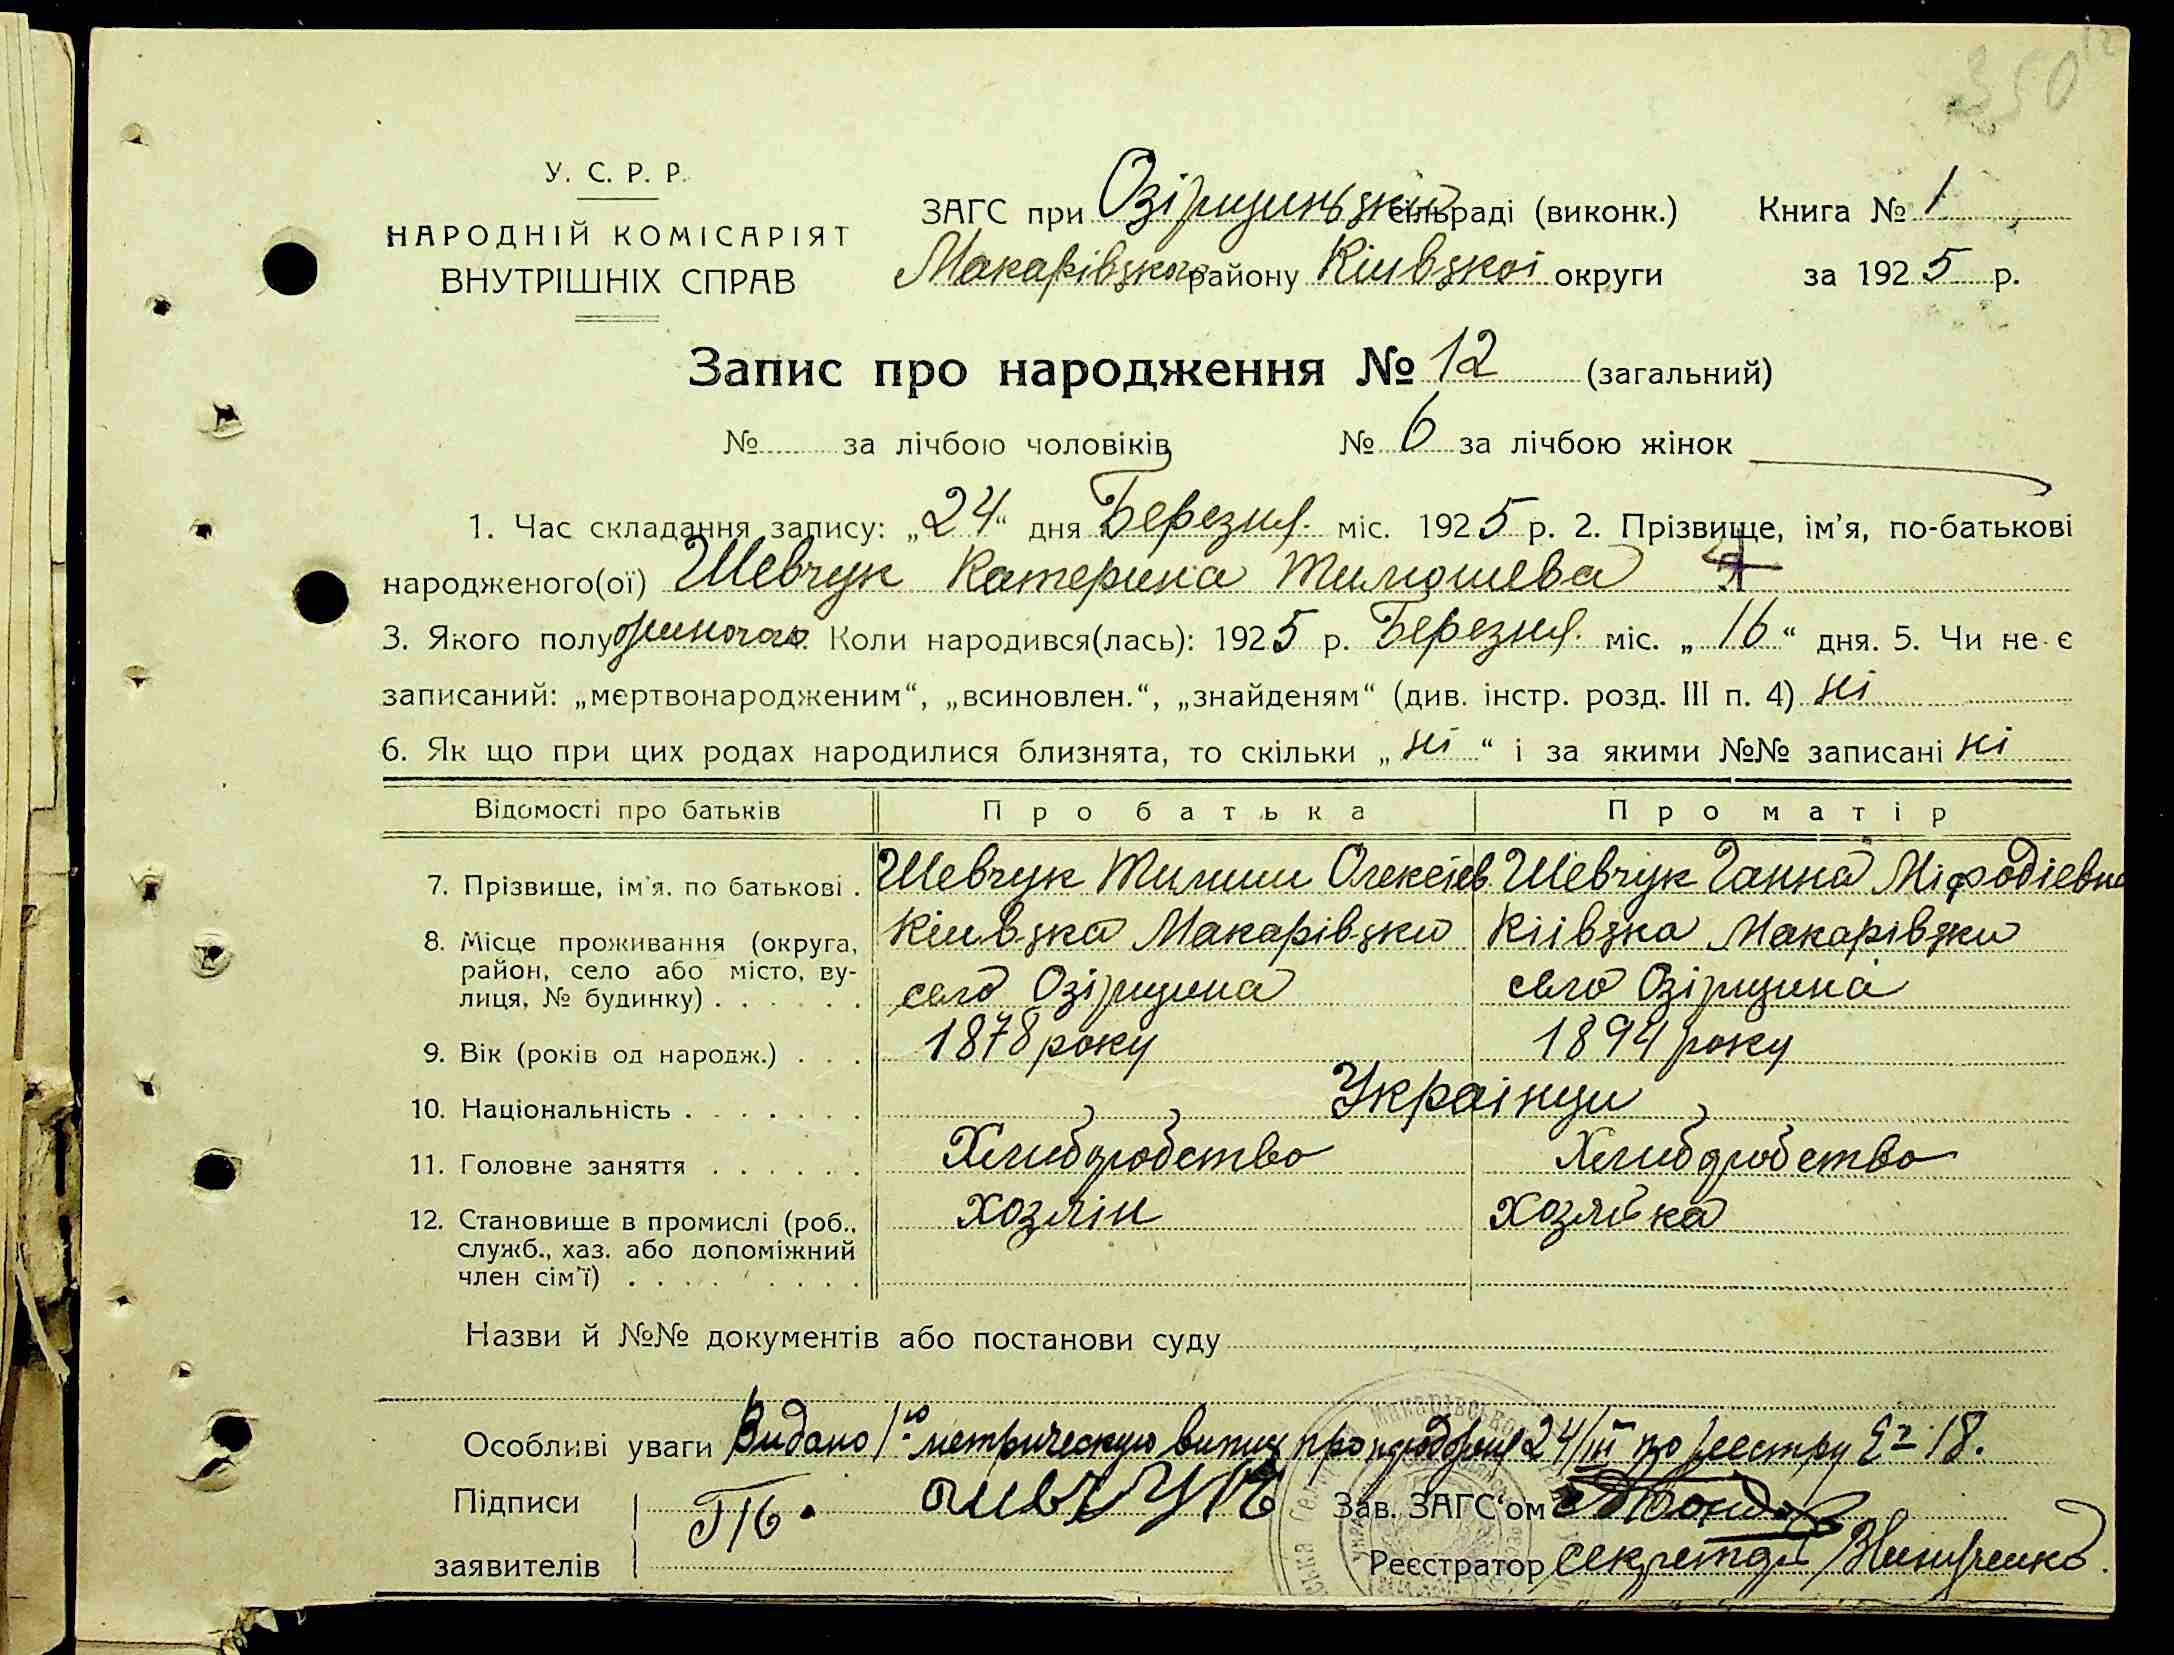 350
У. С. Р. Р.
НАРОДНІЙ КОМІСАРІЯТ
ВНУТРІШНІХ СПРАВ
ЗАГС при Озірщиньский сільраді (виконк.) Книга № 1
Макарівського району Київської округи за 1925 р.
Запис про народження № 12 (загальний)
№ за лічбою чоловіків № 6 за лічбою жінок
1. Час складання запису: „24“ дня Березня міс. 1925 р. 2. Прізвище, ім'я, по-батькові
народженого(ої) Шевчук Катерина Тимошева
3. Якого полу Коли народився(лась): 1925 р. Березня міс. „16“ дня. 5. Чи не є
записаний: „мертвонародженим“, „всиновлен.“, „знайденям“ (див. інстр. розд. III п. 4) ні
6. Як що при цих родах народилися близнята, то скільки „ні“ і за якими №№ записані ні
Відомості про батьків Про батька Про матір
7. Прізвище, ім'я. по батькові . Шевчук Тимиш Олексіев Шевчук Ганна Міфодіевна
8. Місце проживання (округа, Київска Макарівски Київска Макарівски
район, село або місто, ву-
лиця, № будинку) . . . . . . село Озірщина село Озірщина
9. Вік (років од народж.) . . . 1878 року 1894 року
10. Національність . . . . . . . Українци
11. Головне заняття . . . . . . Хлиборобство Хлиборобство
12. Становище в промислі (роб., хозяін хозяйка
служб., хаз. або допоміжний
член сім'ї) . . . . . . . . .
Назви й №№ документів або постанови суду
Особливі уваги Видано 1ю метрическую випись про народженя 24/III по реестру № 18.
Підписи Шевчук Зав. ЗАГС'ом
заявителів Реєстратор секретар